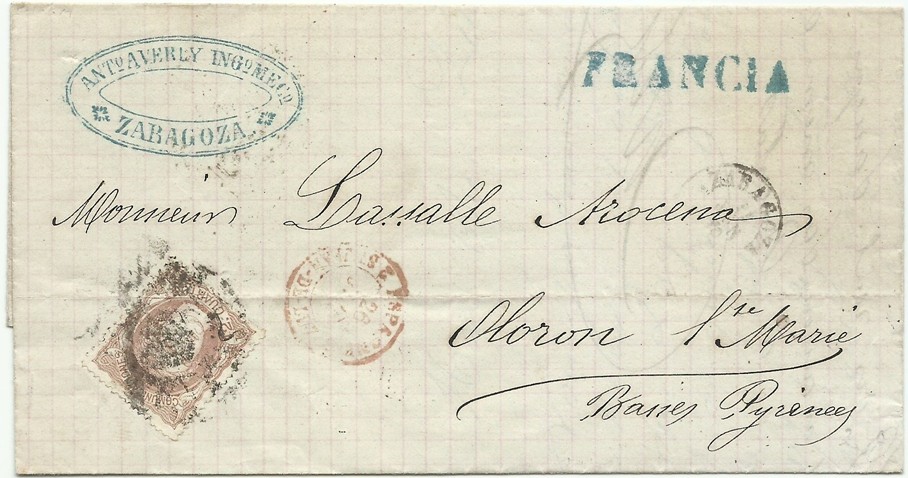 ANTO AVERLY INGO MECO
ZARAGOZA
FRANCIA
Monsieur Lassalle Arocena
ZARAGOZA
ESPAGNE
Oloron Ste Marie
Basses Pyrénées
COMUNICACIONES